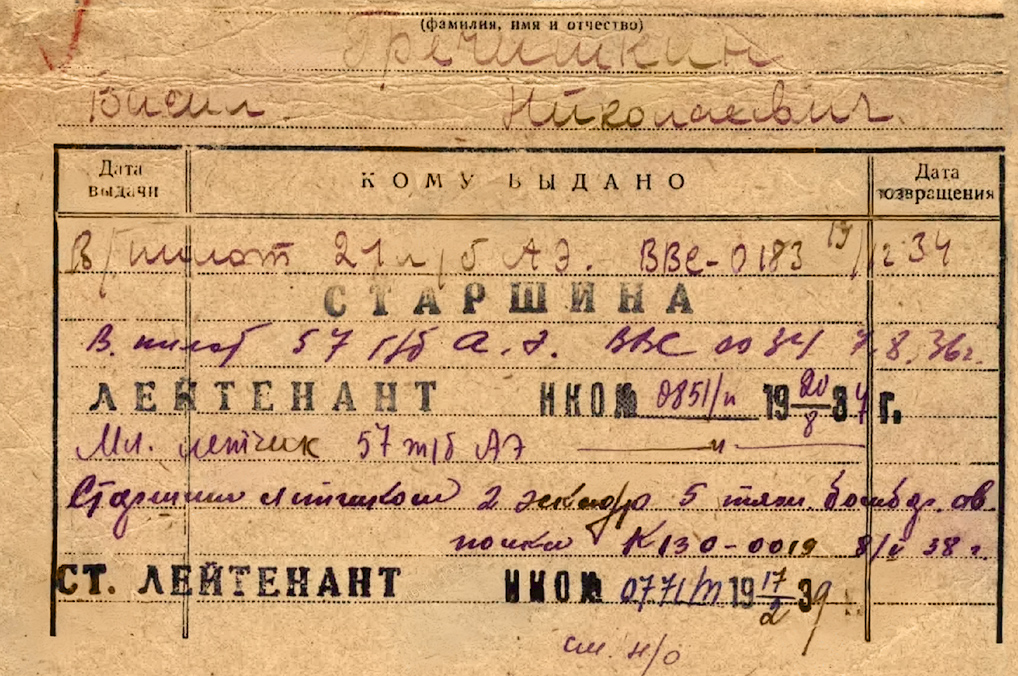 (фамилия, имя и отчество)
Гречишкин
Васил Николаевич.
Дата выдачи
КОМУ ВЫДАНО
Дата возвращения
В/пилот 21 л/б АЭ. ВВС-0183 34
СТАРШИНА
В. пилот 57 т/б А.Э. ВВС 0034 7.8.36г.
ЛЕЙТЕНАНТ НКО № 0851/п 19 20/8 37 г.
Мл. летчик 57 т/б АЭ — и —
Старшим летчиком 2 эскадр 5 тяж. бомбар. ав.
полка К130-0019 38 г.
СТ. ЛЕЙТЕНАНТ НКО № 0771/п 19 17/2 39
см. н/о